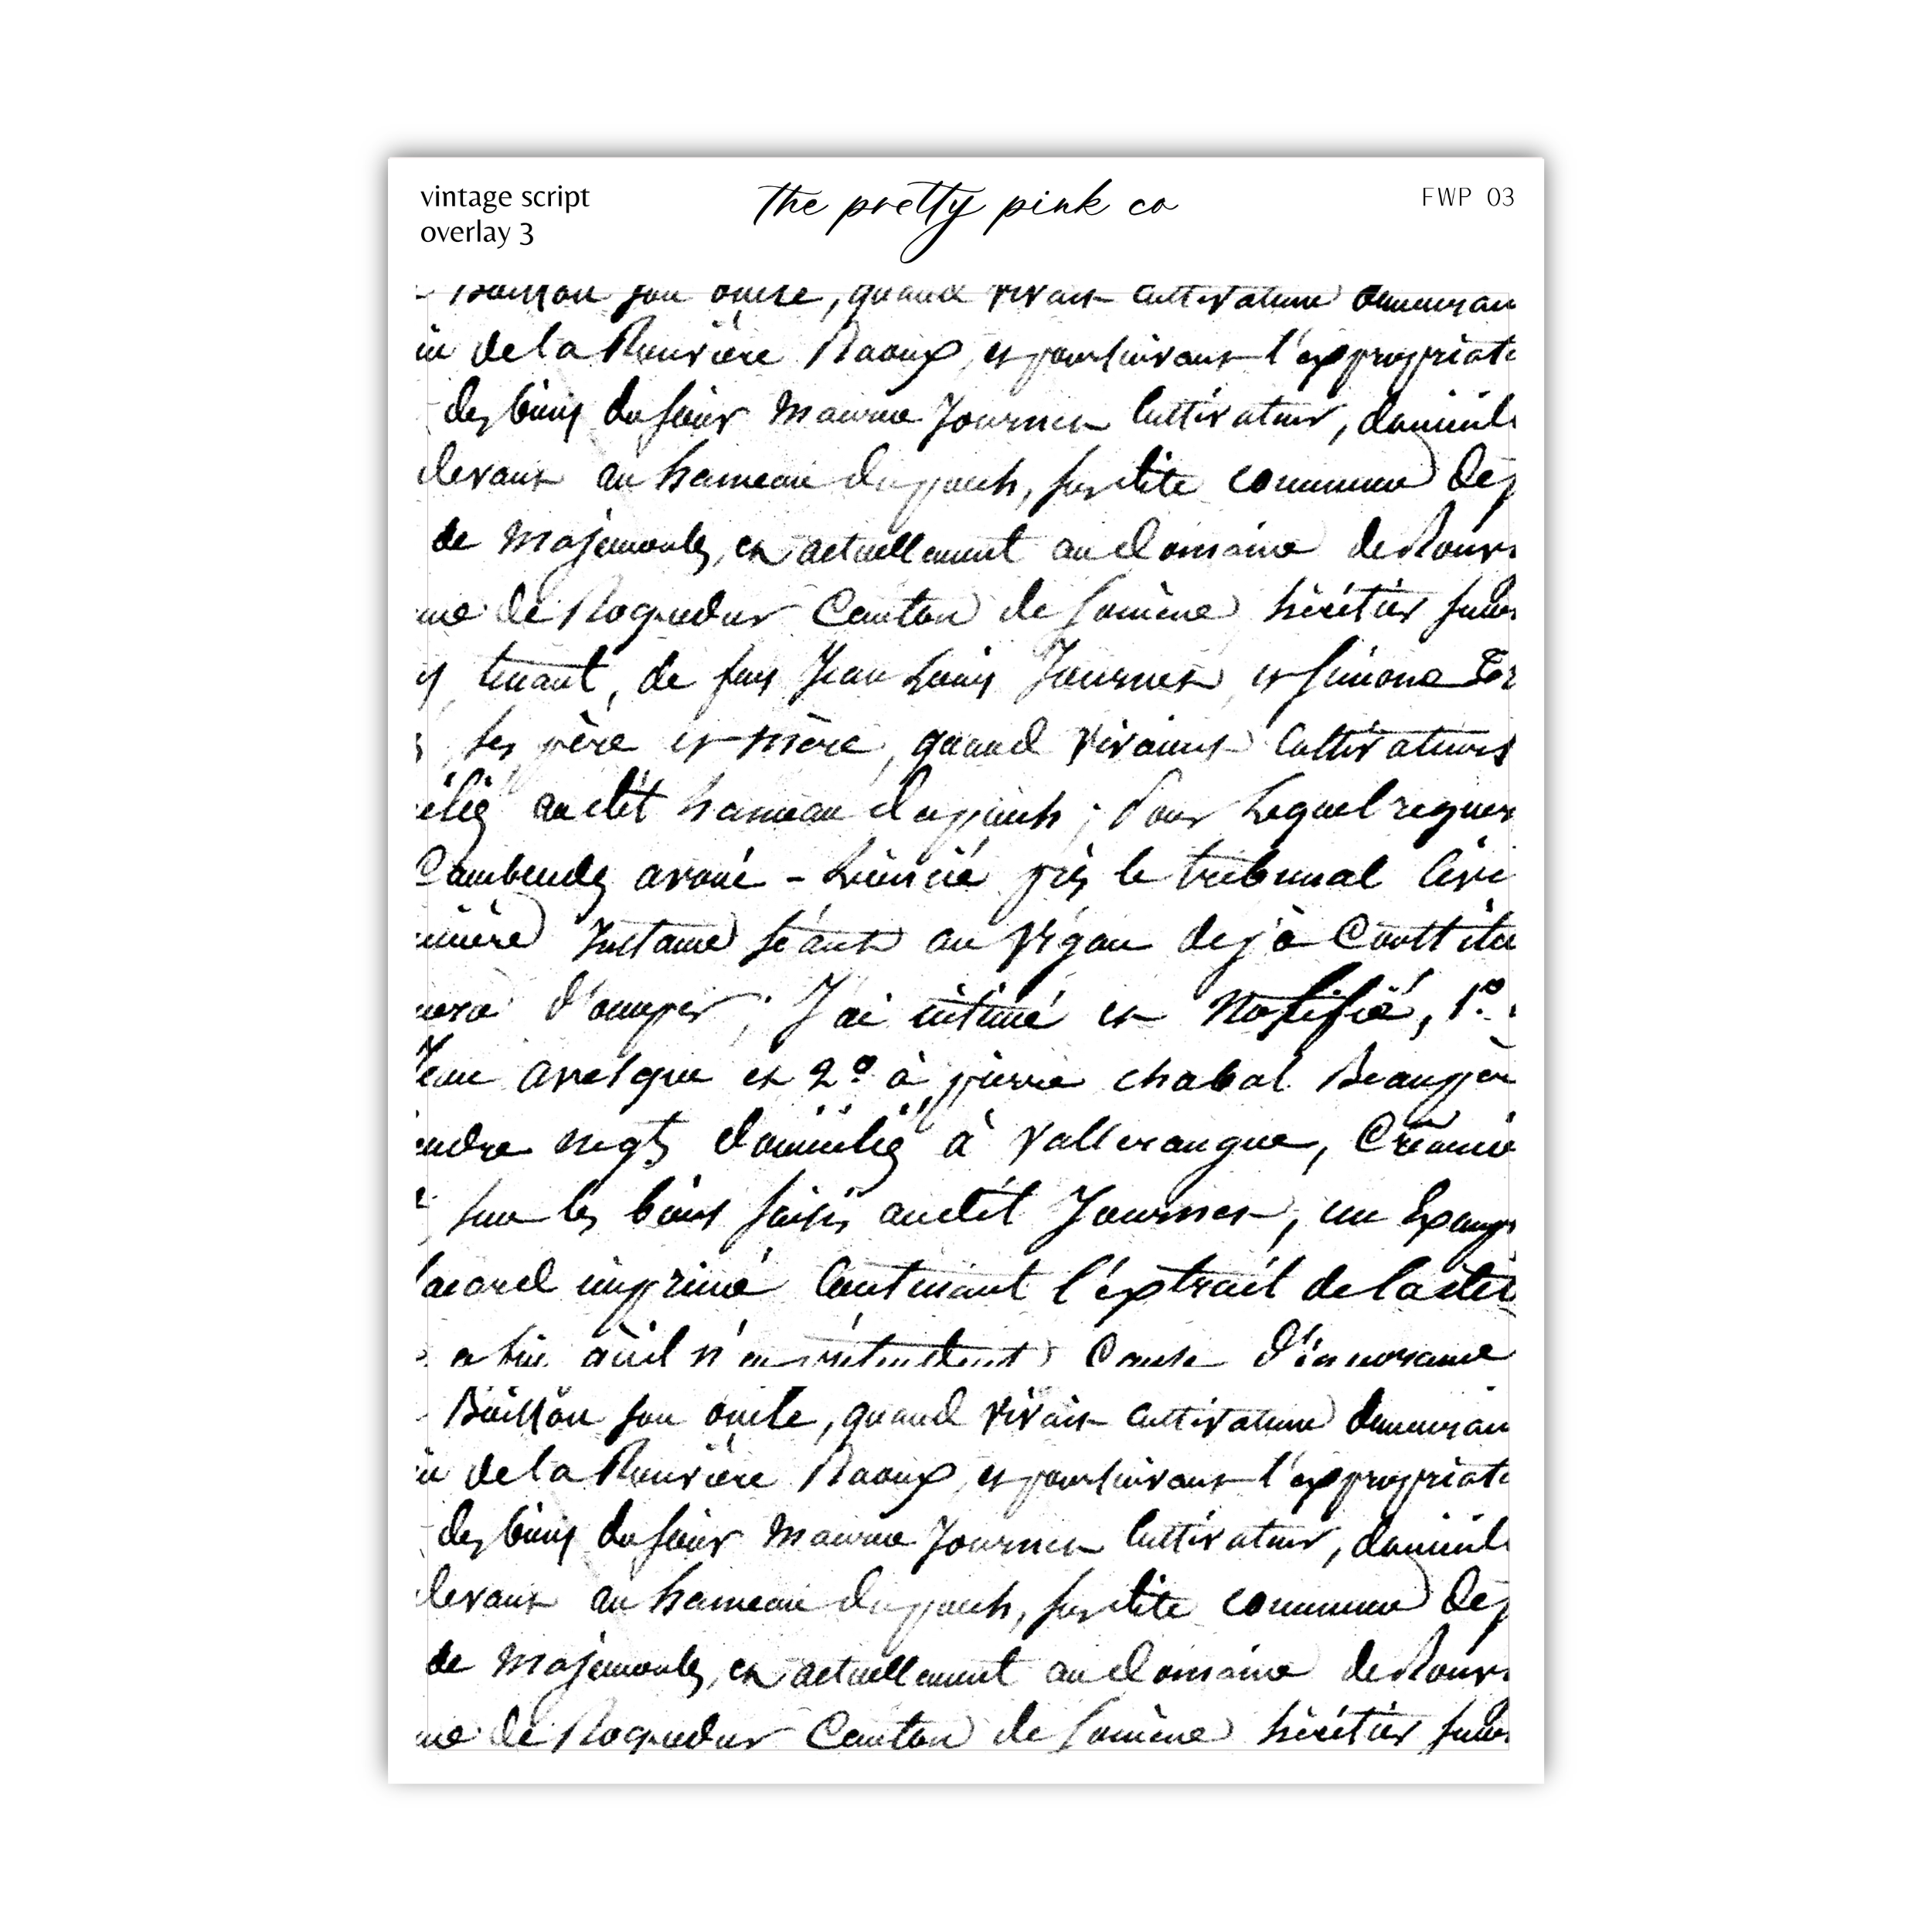 vintage script
overlay 3
the pretty pink co
FWP 03
son oncle, quand vivait cultivateur demeuran
de la Rouvière Raoux, et poursuivant l'expropriati
des biens du sieur Maurice Journet Cultivateur, domicil
devant au hameau du puech, susdite commune de
de Majencoule, et actuellement au domaine de Rouv
de Roquedur Canton de Sumène héritier
tenant, de feus Jean Louis Journet et Simone
ses père et mère, quand vivaient Cultivateurs
audit hameau du puech; Pour lequel requer
avoué - licencié près le tribunal Civi
Instance séant au Vigan dej'à Constitu
d'occuper; J'ai intimé et Notifié, 1º
et 2º à pierre chabal
domiciliés à Valleraugue, Créanci
sur les biens saisis audit Journet, un Exemp
placard imprimé Contenant l'extrait de la
qu'il n'en prétendent Cause d'ignorance
son oncle, quand vivait cultivateur demeuran
de la Rouvière Raoux, et poursuivant l'expropriati
des biens du sieur Maurice Journet Cultivateur, domicil
devant au hameau du puech, susdite commune de
de Majencoule, et actuellement au domaine de Rouv
de Roquedur Canton de Sumène héritier